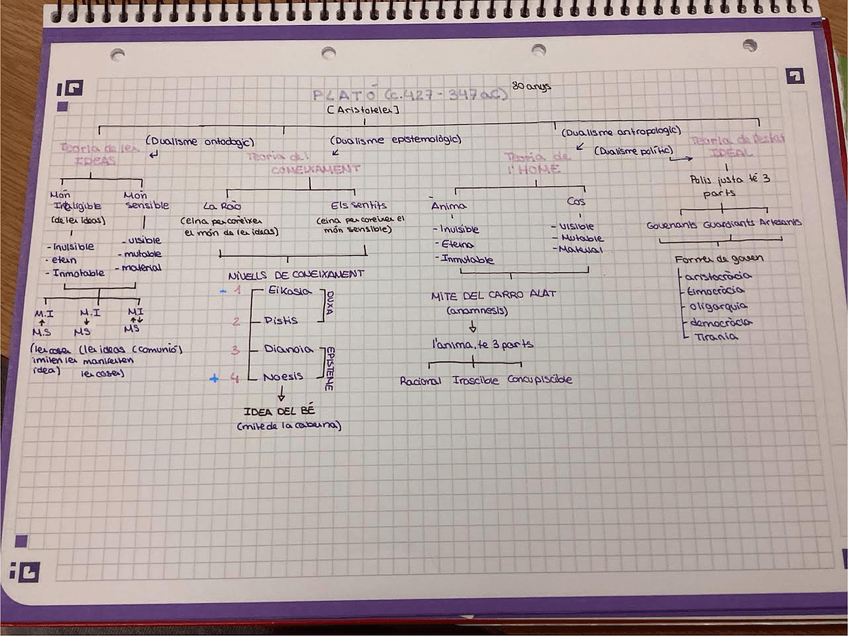 PLATÓ (c.427-347 aC) 80 anys
[Aristòteles]
(Dualisme ontologic) (Dualisme epistemològic) (Dualisme antropologic)
(Dualisme polític)
Teoria de les
IDEAS
Mon
Inteligible
(de les ideas)
- Invisible
- etern
- Inmotable
Mon
sensible
- visible
- mutable
- material
M.I
M.S
M.I
MS
MI
MS
(les coses
imiten les
idea)
(les ideas
manifesten
les coses)
(comunió)
Teoria del
CONEIXAMENT
La Raó
(eina per coneixer
el món de les ideas)
Els sentits
(eina per coneixer el
món sensible)
NIVELLS DE CONEIXAMENT
- 1 Eikasia
2 Pistis
DOXA
3 Dianoia
+ 4 Noesis
EPISTEME
IDEA DEL BÉ
(mite de la caberna)
Teoria de
l'HOME
Ànima
- Invisible
- Eterna
- Inmutable
Cos
- Visible
- Mutable
- Material
MITE DEL CARRO ALAT
(anamnesis)
l'anima, te 3 parts
Racional Irascible Concupiscible
Teoria de l'estat
IDEAL
Polis justa té 3
parts
Governants Guardiants Artesants
Formes de govern
aristocràcia
timocràcia
oligarquia
democràcia
Tirania